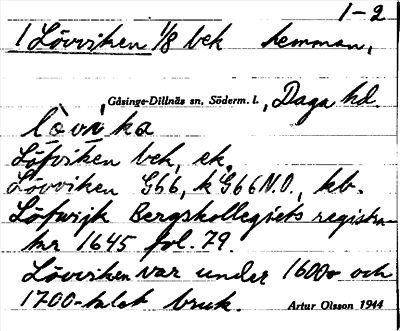 1-2
1 Lövviken 1/8 bek hemman,
Gåsinge-Dillnäs sn, Söderm. l., Daga hd.
lò̀vika
Löfviken bek, ek.
Lövviken G66, k G66N.O., kb.
Löfwijk Bergskollegiets registra-
tur 1645 fol. 79.
Lövviken var under 1600- och
1700-talet bruk.
Artur Olsson 1944